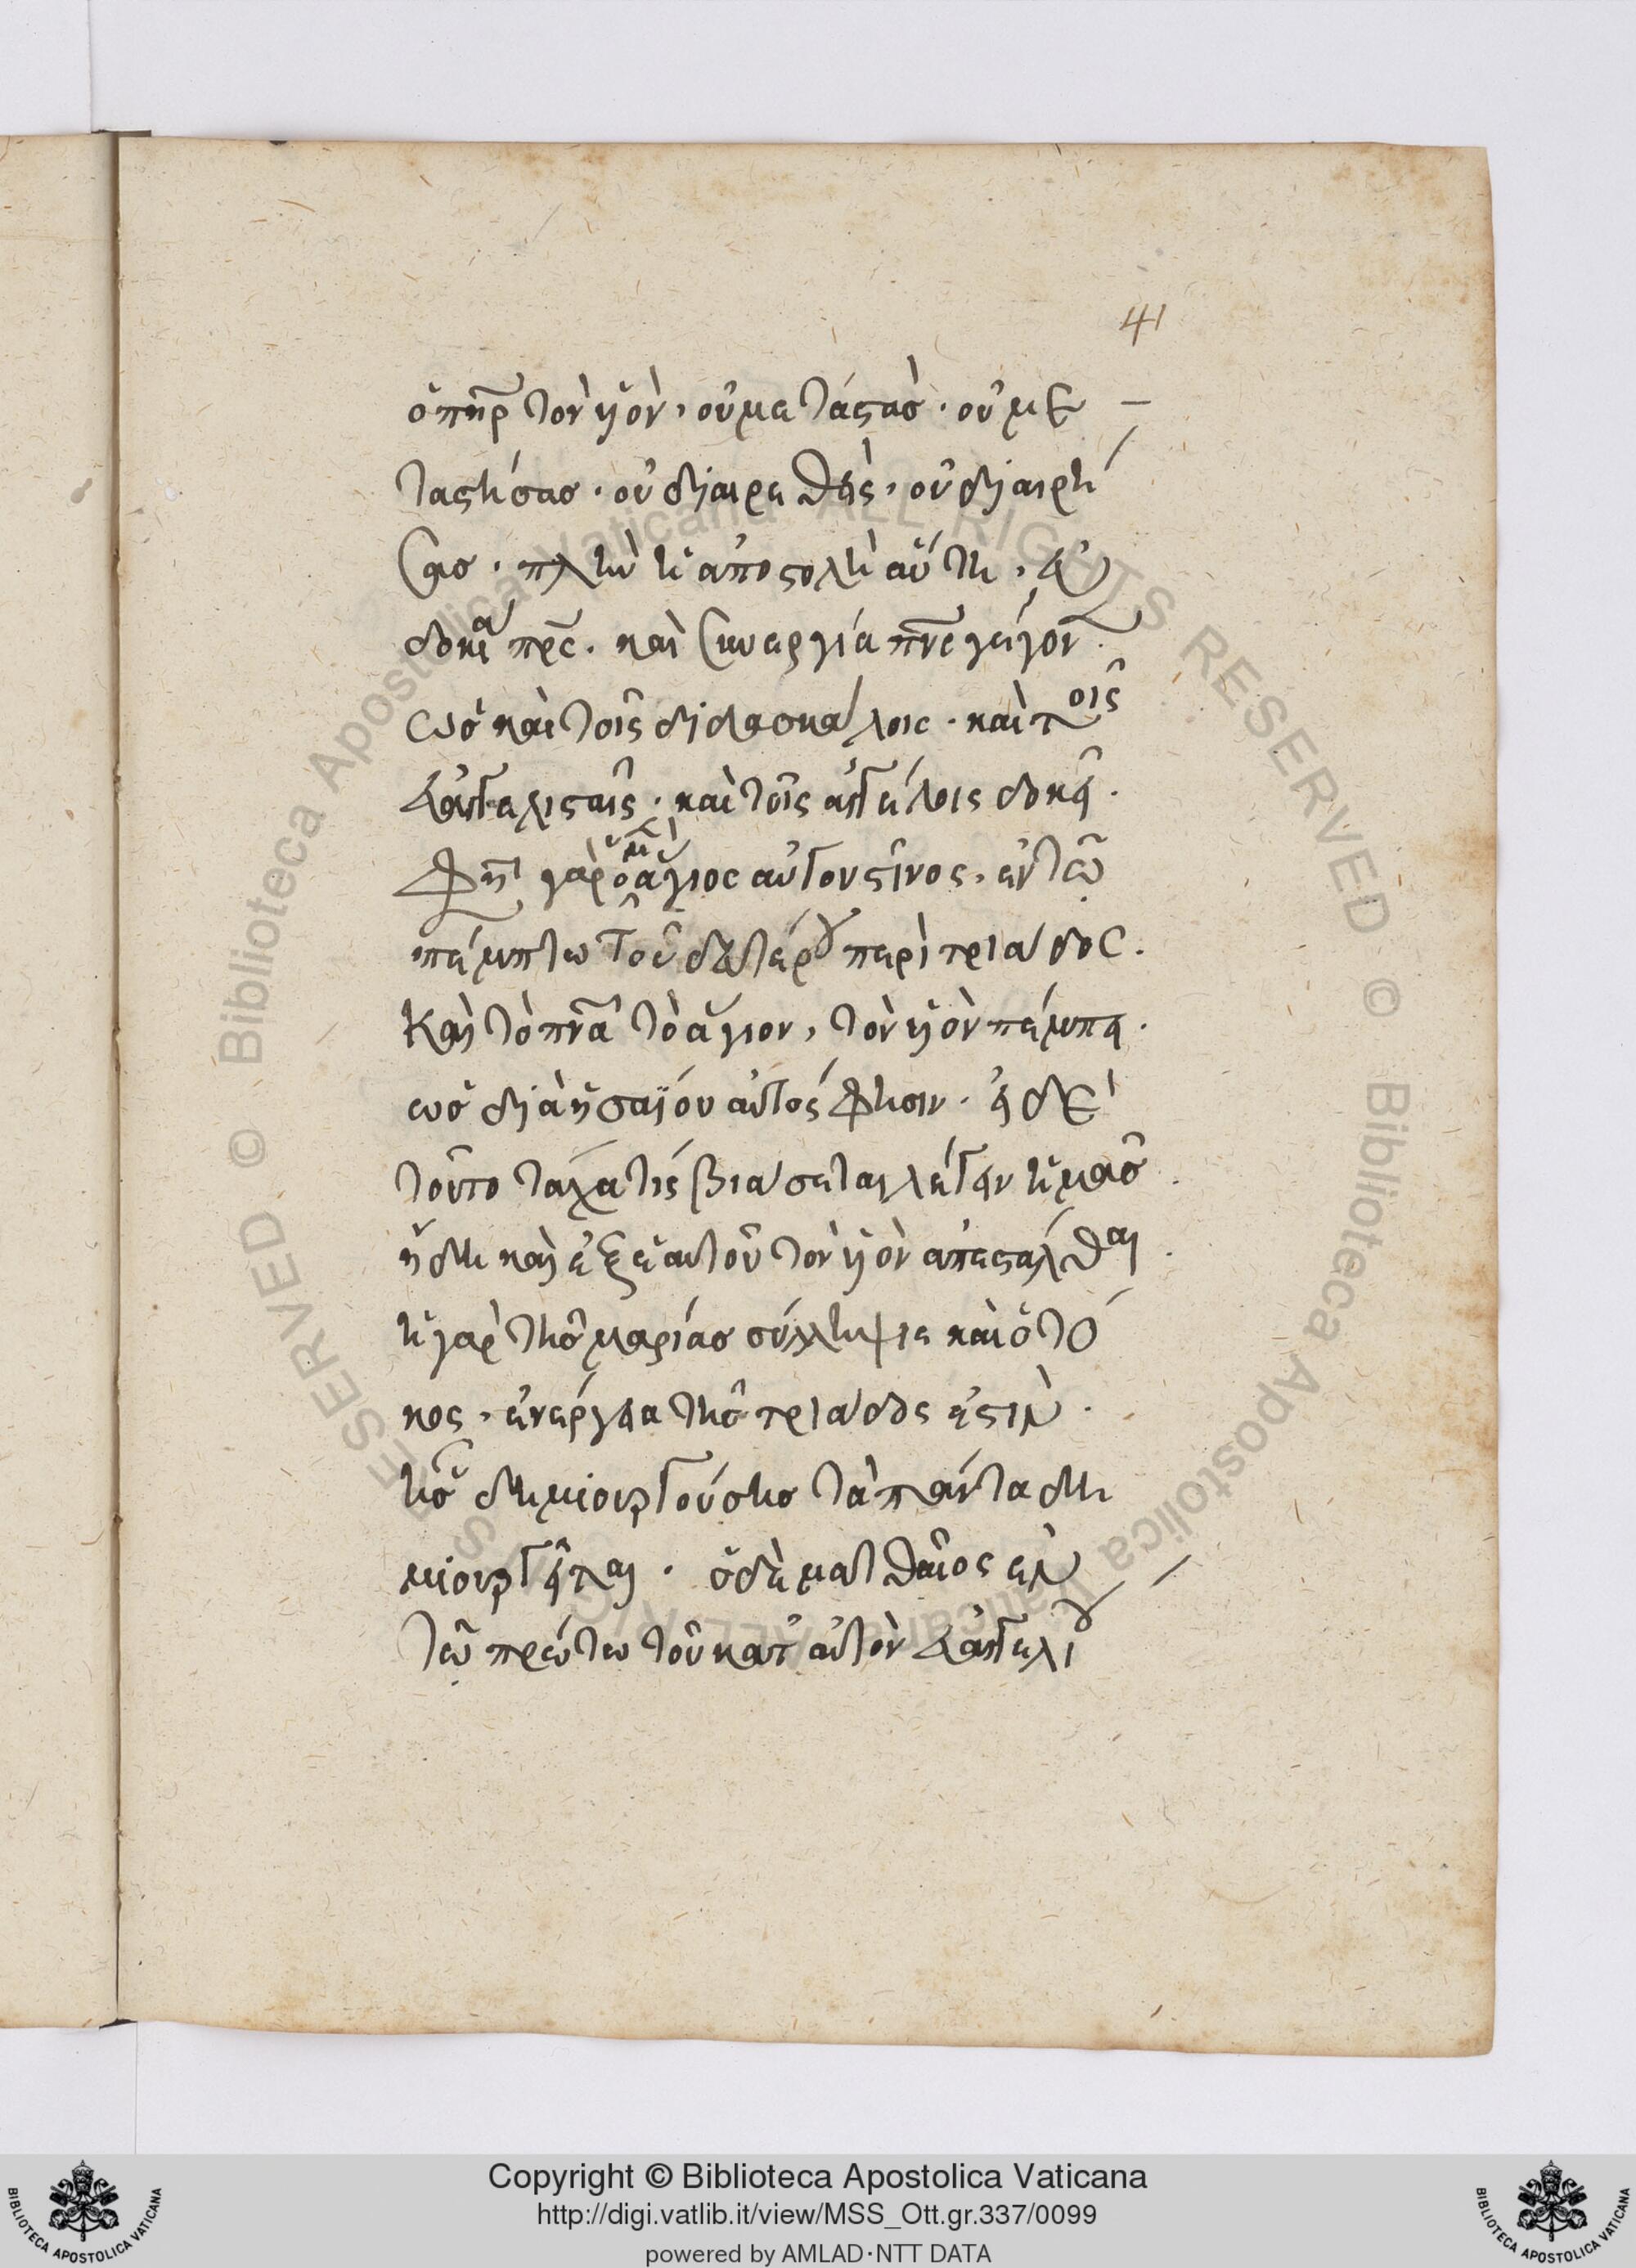 41
ὁ πηρ τὸν ὑὸν, οὐ μεταστὰς. οὐ με
ταστήσας. οὐ διαιρεθεὶς, οὐ διαιρή
σας. πλὴν ἡ ἀποστολὴ αὕτη, εὐ
δοκία πρς. καὶ συνεργία πνς γέγον
ὡς καὶ τοῖς διδασκάλοις. καὶ τοῖς
εὐαγγελισταῖς. καὶ τοῖς ἀγγέλοις δοκεῖ.
φησὶ γὰρ ὁ ἅγιος αὐγουστῖνος, ἐν τῷ
πέμπτω τοῦ δευτέρου περὶ τριάδος.
Καὶ τὸ πνα τὸ ἅγιον, τὸν ὑὸν πέμπει.
ὡς διὰ ἡσαΐου αὐτός φησιν. εἰ δὲ
τοῦτο τάχα τίς βιάσεται λέγειν ἡμᾶς.
ἤδη καὶ ἐξ ἑαυτοῦ τὸν ὑὸν ἀπεστάλθαι.
ἡ γὰρ τῆς μαρίας σύλληψις καὶ ὁ τό
κος, ἐνέργεια τῆς τριάδος ἐστὶν.
ἧς δημιουργούσης τὰ πάντα δη
μιουργεῖται. ὁ δὲ ματθαῖος ἐν
τῷ πρώτω τοῦ κατ' αὐτὸν εὐαγγελίου
Copyright © Biblioteca Apostolica Vaticana
http://digi.vatlib.it/view/MSS_Ott.gr.337/0099
powered by AMLAD·NTT DATA
BIBLIOTECA APOSTOLICA VATICANA
BIBLIOTECA APOSTOLICA VATICANA